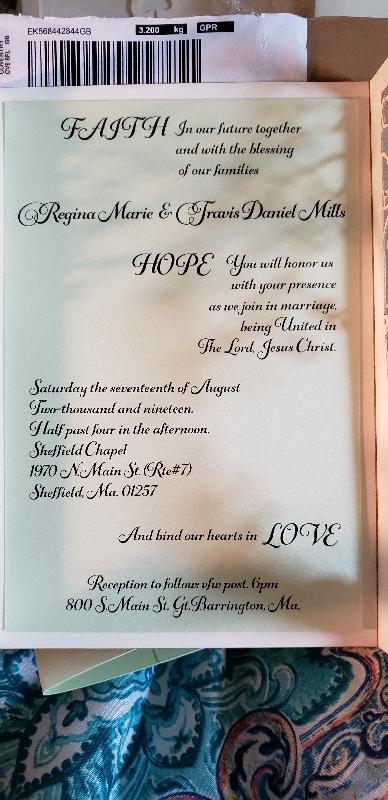 EK568442844GB
3.200 kg GPR
COVENTRY
CV6 5FL GB
FAITH In our future together
and with the blessing
of our families
Regina Marie & Travis Daniel Mills
HOPE You will honor us
with your presence
as we join in marriage,
being United in
The Lord, Jesus Christ.
Saturday the seventeenth of August
Two-thousand and nineteen.
Half past four in the afternoon.
Sheffield Chapel
1970 N.Main St. (Rte#7)
Sheffield, Ma. 01257
And bind our hearts in LOVE
Reception to follow: vfw post. 6pm
800 S.Main St. Gt.Barrington, Ma.